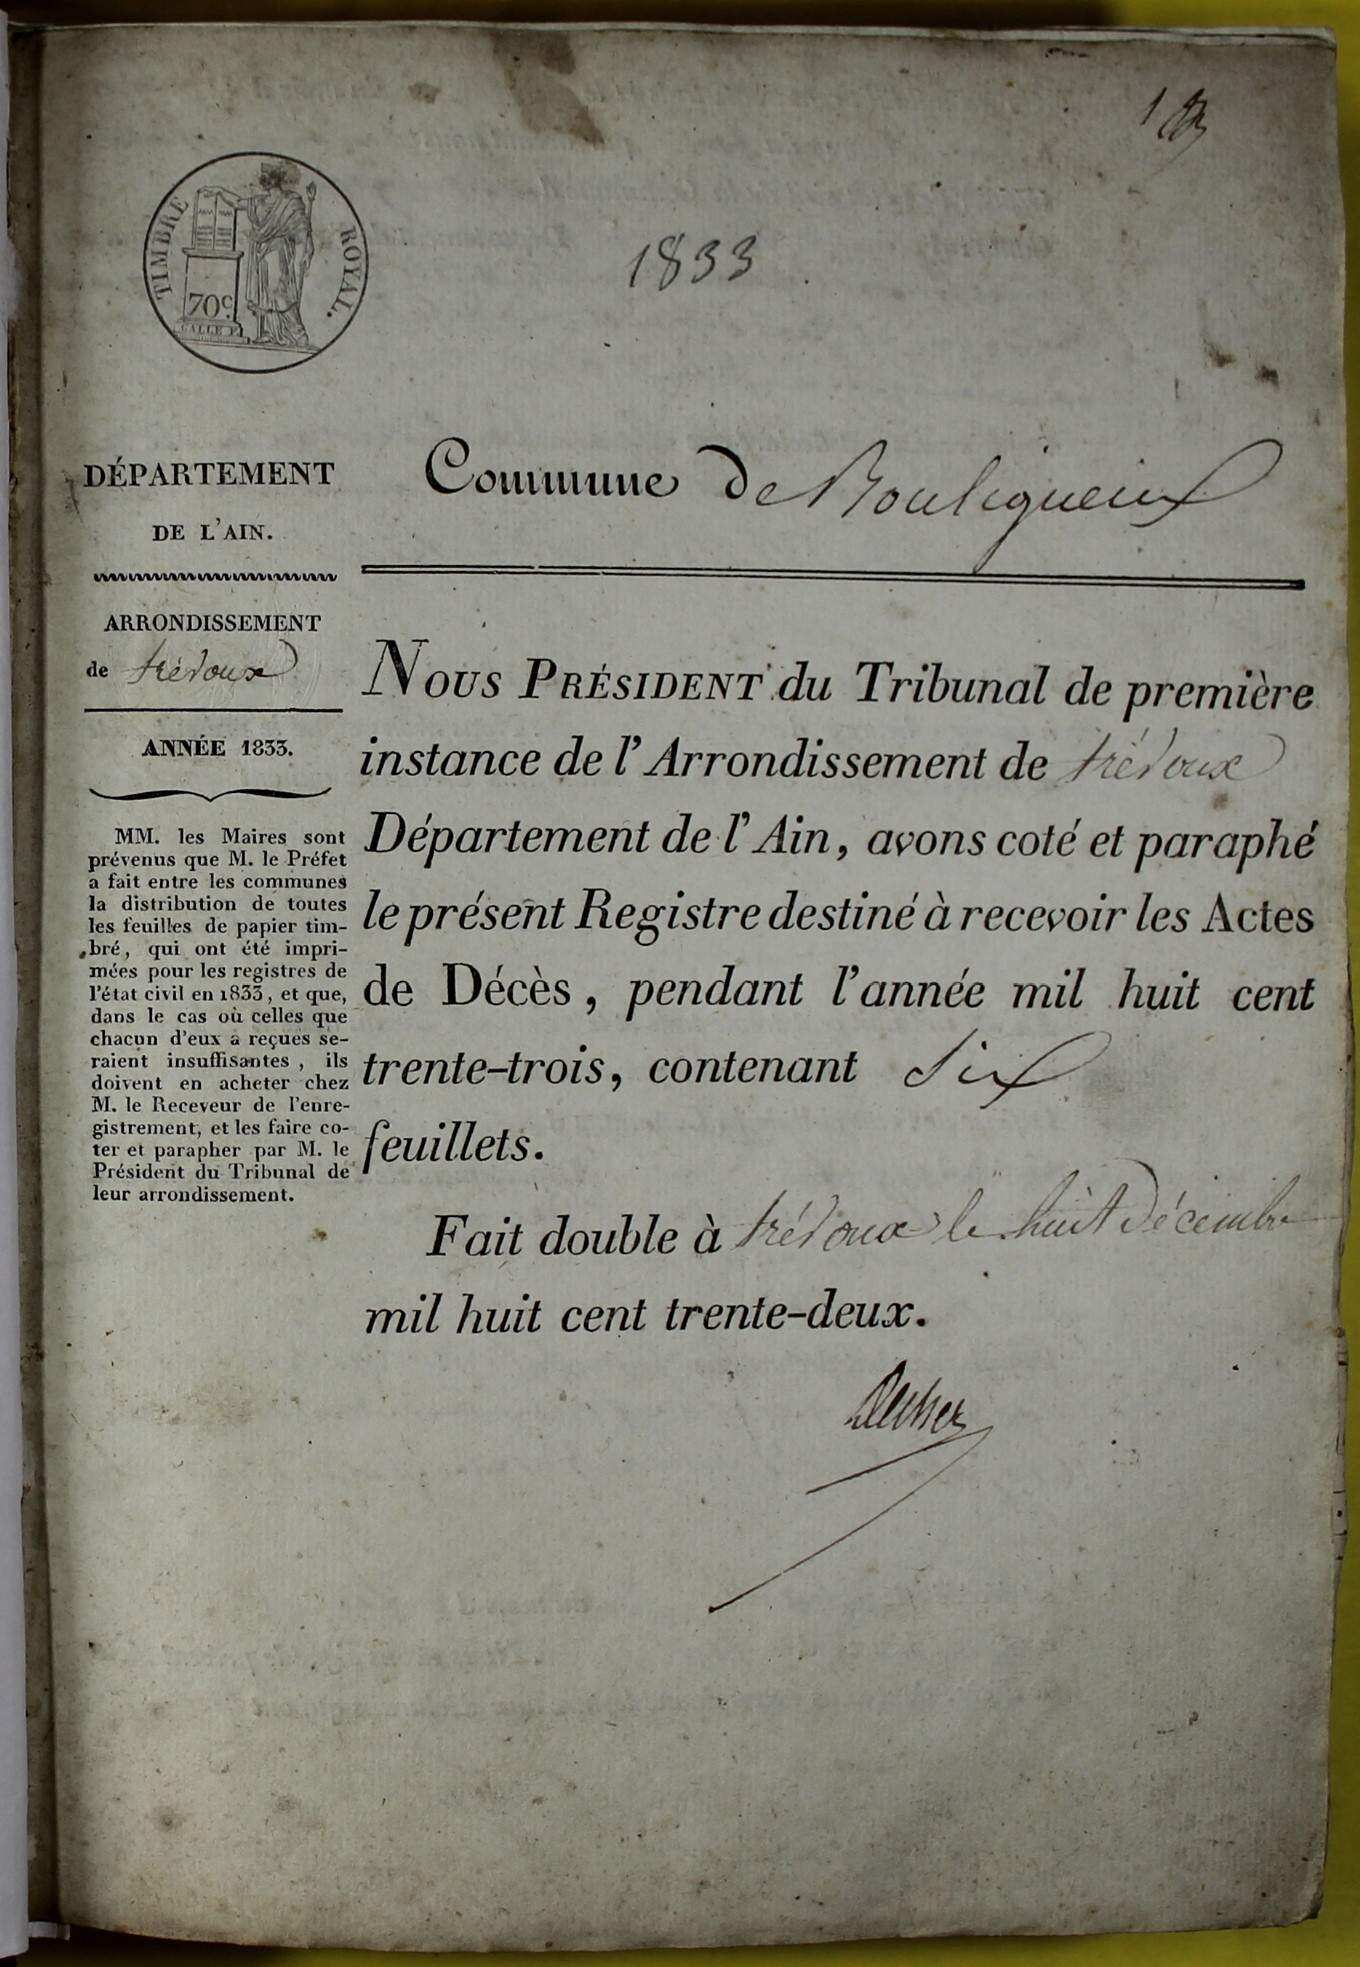 1
TIMBRE ROYAL.
70c
1833
DÉPARTEMENT
DE L'AIN.
ARRONDISSEMENT
de trévoux
ANNÉE 1833.
MM. les Maires sont
prévenus que M. le Préfet
a fait entre les communes
la distribution de toutes
les feuilles de papier tim-
bré, qui ont été impri-
mées pour les registres de
l'état civil en 1833, et que,
dans le cas où celles que
chacun d'eux a reçues se-
raient insuffisantes, ils
doivent en acheter chez
M. le Receveur de l'enre-
gistrement, et les faire co-
ter et parapher par M. le
Président du Tribunal de
leur arrondissement.
Commune de Bouligneux
NOUS PRÉSIDENT du Tribunal de première
instance de l'Arrondissement de trévoux
Département de l'Ain, avons coté et paraphé
le présent Registre destiné à recevoir les Actes
de Décès, pendant l'année mil huit cent
trente-trois, contenant Six
feuillets.
Fait double à trévoux le huit Décembre
mil huit cent trente-deux.